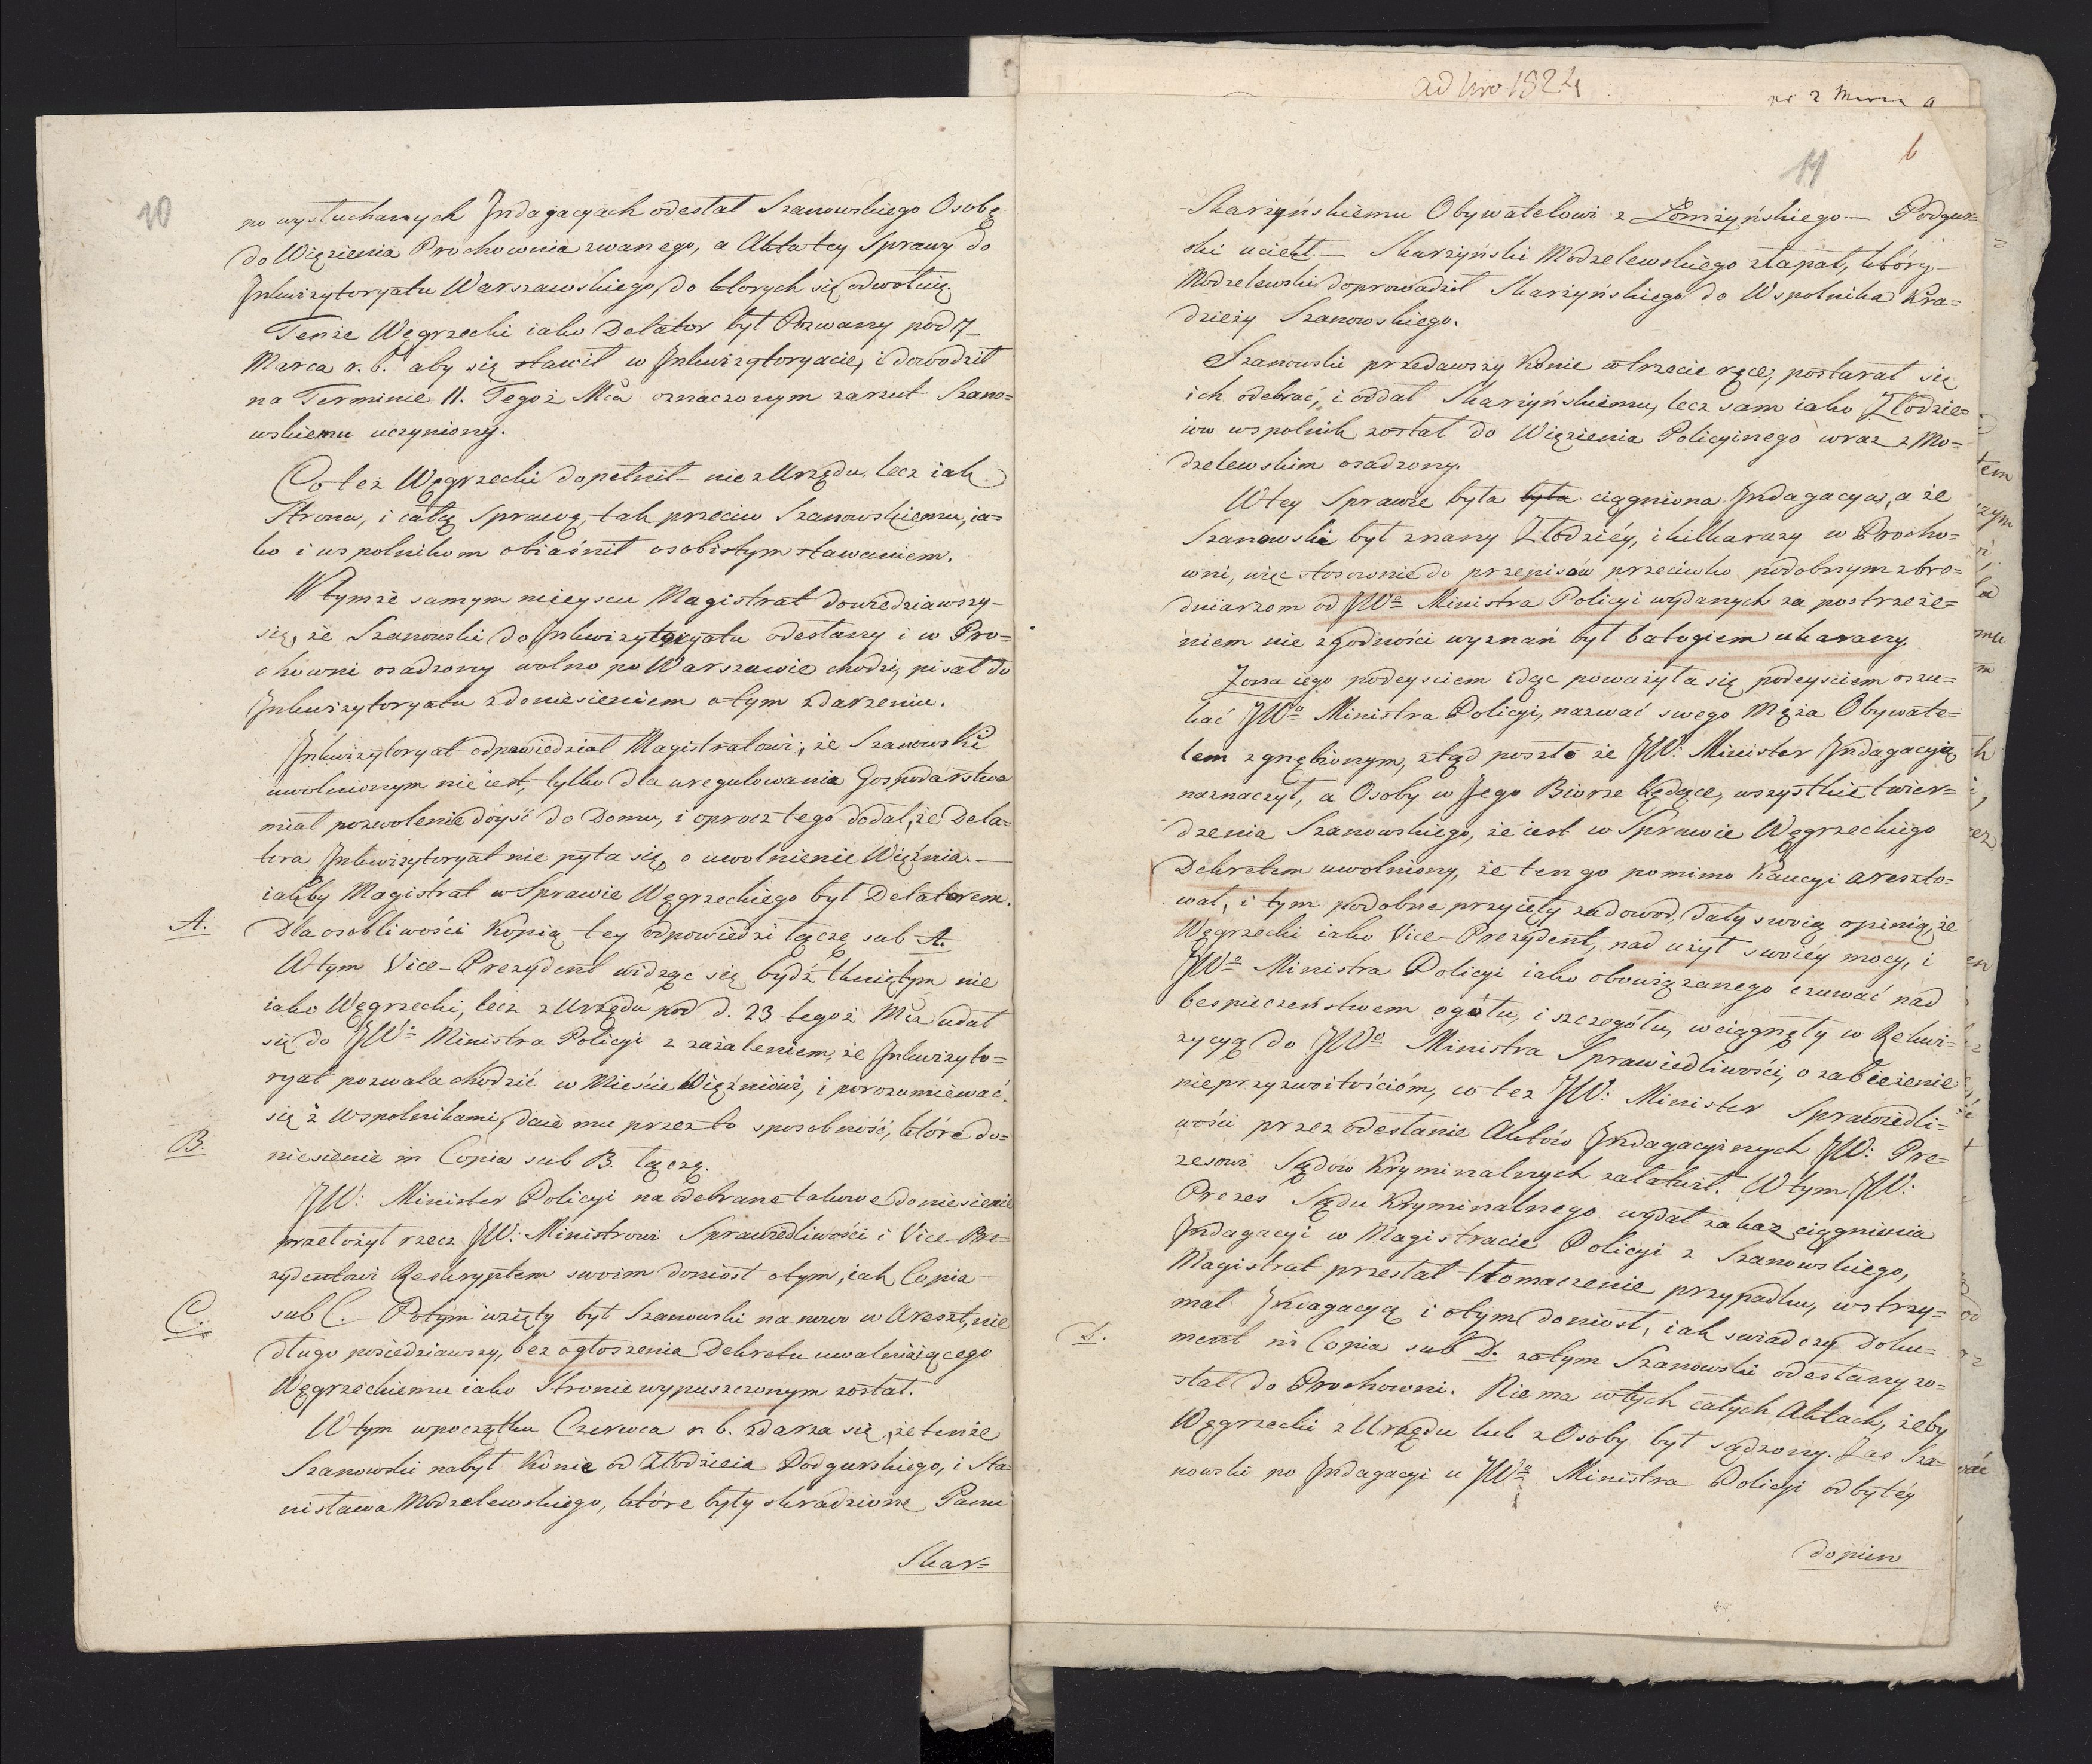 10
po wysłuchanych Jndagacyach odesłał Szanowskiego Osobę
do Więzienia Prochownia zwanego, a Akta tey Sprawy do
Jnkwizytoryatu Warszawskiego, do ktorych się odwołuię.
Tenże Węgrzecki iako Delator był Pozwany pod 7
Marca r. b. aby się stawił w Jnkwizytoryacie, i dowodził
na Terminie 11. Tegoż Mca oznaczonym zarzut Szano=
wskiemu uczyniony.
Co też Węgrzecki dopełnił nie z Urzędu, lecz iak
Strona, i całą Sprawę, tak przeciw Szanowskiemu, ia=
ko i wspolnikom obiaśnił osobistym stawaniem.
W tymże samym mieyscu Magistrat dowiedziawszy
się, że Szanowski do Jnkwizytoryatu odesłany i w Pro=
chowni osadzony wolno po Warszawie chodzi, pisał do
Jnkwizytoryatu z doniesieniem o tym zdarzeniu.
Jnkwizytoryat odpowiedział Magistratowi, że Szanowski
uwolnionym nie iest, tylko dla uregulowania Gospodarstwa
miał pozwolenie doyść do Domu, i oprocz tego dodał, że Dela=
tora Jnkwizytoryat nie pyta się o uwolnienie Więźnia. —
iakby Magistrat w Sprawie Węgrzeckiego był Delatorem.
A. Dla osobliwości Kopią tey odpowiedzi łączę sub A.
W tym Vice-Prezydent widząc się bydź tkniętym nie
iako Węgrzecki, lecz z Urzędu pod d. 23 tegoż Mca udał
się do JWo Ministra Policyi z zażaleniem, że Jnkwizyto=
ryat pozwala chodzić w Mieście Więźniowi, i porozumiewać
się z Wspolnikami, daie mu przez to sposobność, które do=
B. niesienie in Copia sub B. łączę.
JW: Minister Policyi na odebrane takowe doniesienie
przełożył rzecz JW: Ministrowi Sprawiedliwości i Vice-Pre=
zydentowi Reskryptem swoim doniosł o tym, iak Copia
C. sub C. — Potym wzięty był Szanowski na nowo w Areszt, nie
długo posiedziawszy, bez ogłoszenia Dekretu uwalniaiącego
Węgrzeckiemu iako Stronie wypuszczonym został.
W tym w początku Czerwca r. b. zdarza się, że tenże
Szanowski nabył Konie od Złodzieia Podgurskiego, i Sta=
nisława Modzelewskiego, które były skradzione Panu
Skar=
ad Nro 1824
11
b
Skarżyńskiemu Obywatelowi z Łomżyńskiego — Podgur=
ski uciekł. — Skarżyński Modzelewskiego złapał, który
Modzelewski doprowadził Skarżyńskiego do Wspolnika Kra=
dzieży Szanowskiego.
Szanowski przedawszy Konie w trzecie ręce, postarał się
ich odebrać, i oddał Skarżyńskiemu, lecz sam iako Złodzie=
iow wspolnik został do Więzienia Policyinego wraz z Mo=
dzelewskim osadzony.
W tey Sprawie była była ciągniona Jndagacya, a że
Szanowski był znany Złodziéy, i kilka razy w Procho=
wni, więc stosownie do przepisów przeciwko podobnym zbro=
dniarzom od JWo Ministra Policyi wydanych za postrzeże=
niem nie zgodności wyznań był batogiem ukarany.
Żona iego podeysciem idąc poważyła się podeysciem oszu=
kać JWo Ministra Policyi, nazwać swego Męża Obywate=
lem zgnębionym, ztąd poszło że JW: Minister Jndagacyią
naznaczył, a Osoby w Jego Biorze będące, wszystkie twier=
dzenia Szanowskiego, że iest w Sprawie Węgrzeckiego
Dekretem uwolniony, że ten go pomimo Kaucyi areszto=
wał, i tym podobne przyięły za dowod, dały swoią opinią, że
Węgrzecki iako Vice-Prezydent, nad użył swoiéy mocy, i
JWo Ministra Policyi iako obowiązanego czuwać nad
bespieczeństwem ogółu, i szczegółu, wciągnęły w Rekwi=
zycyą do JWo Ministra Sprawiedliwości, o zabieżenie
nieprzyzwoitościóm, co też JW: Minister Sprawiedli=
wości przez odesłanie Aktów Jndagacyinych JW: Pre=
zesowi Sądów Kryminalnych załatwił. W tym JW:
Prezes Sądu Kryminalnego wydał zakaz ciągnienia
Jndagacyi w Magistracie Policyi z Szanowskiego,
Magistrat przesłał tłomaczenie przypadku, wstrzy=
mał Jndagacyą i o tym doniosł, iak swiadczy Doku=
D. ment in Copia sub D. zatym Szanowski odesłany zo=
stał do Prochowni. Nie ma w tych całych Aktach, żeby
Węgrzecki z Urzędu lub z Osoby był sądzony. Zas Sza=
nowski po Jndagacyi u JWo Ministra Policyi odbytéy
dopiero